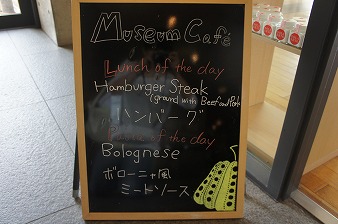 Museum Café
Lunch of the day
Hamburger Steak
(grand with Beef and Pork
ハンバーグ
Pasta of the day
Bolognese
ボローニャ風
ミートソース